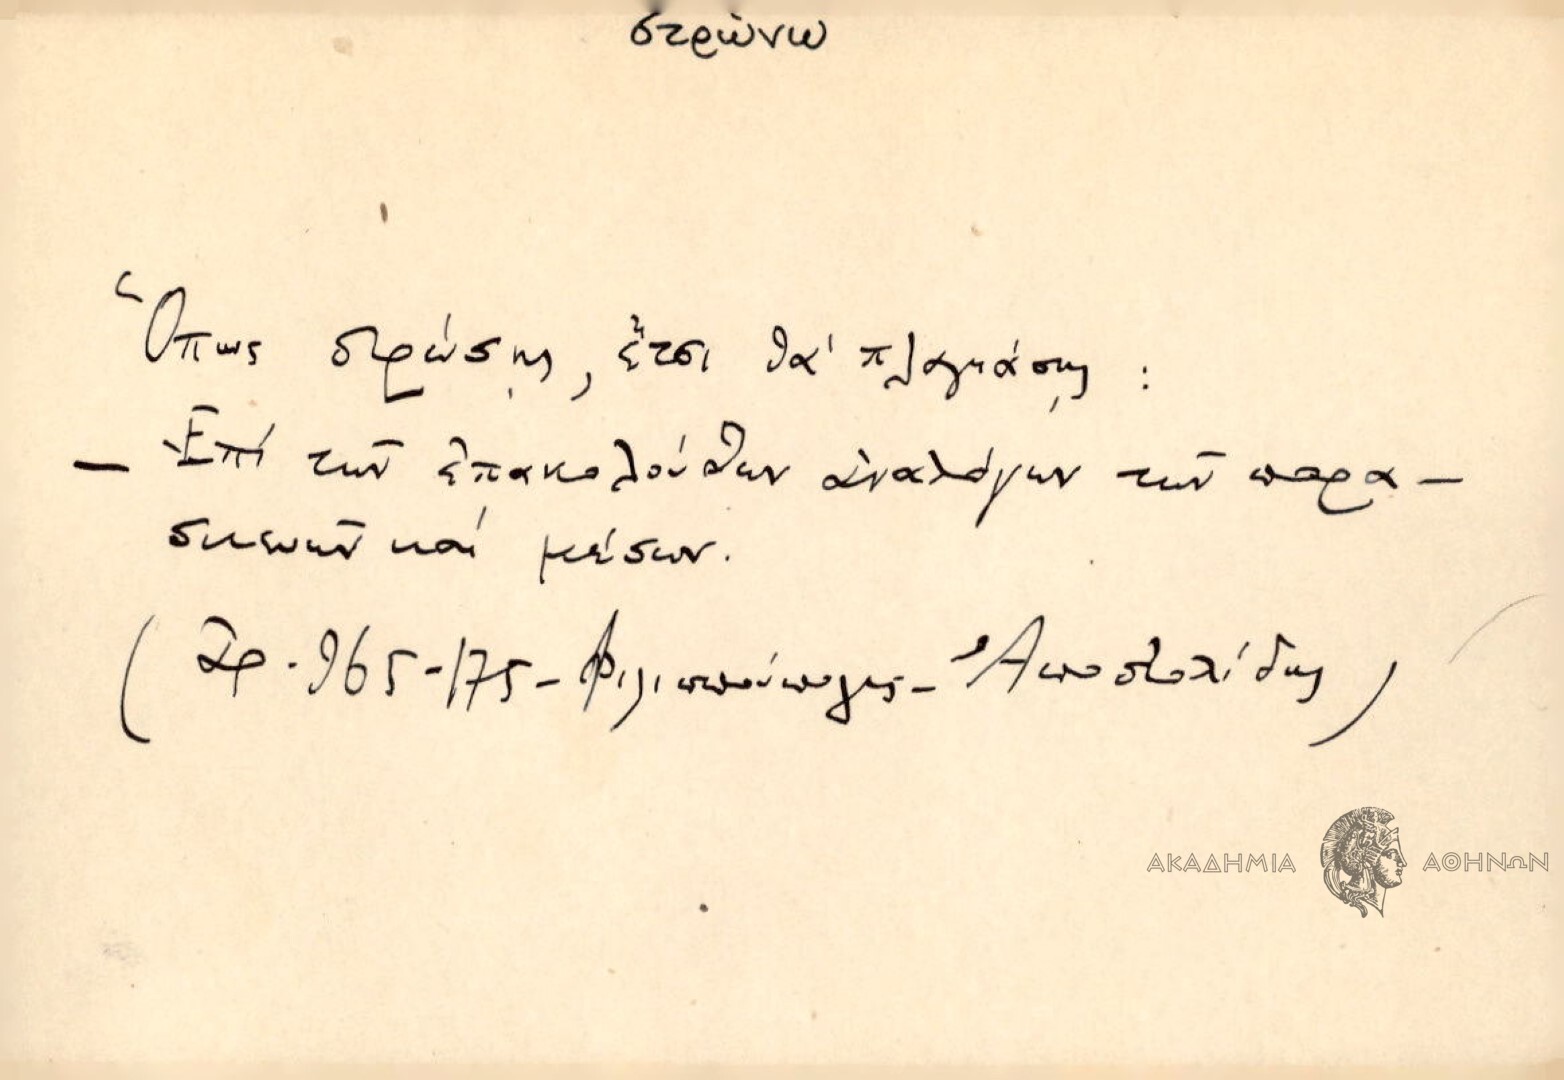 στρώνω
Ὅπως στρώσῃς, ἔτσι θὰ πλαγιάσῃς :
– Ἐπὶ τῶν ἐπακολούθων ἀναλόγων τῶν παρα–
σκευῶν καὶ μέσων.
( Ἀρ. 965-175- Φιλιππούπολις- Ἀποστολίδης )
ΑΚΑΔΗΜΙΑ ΑΘΗΝΩΝ